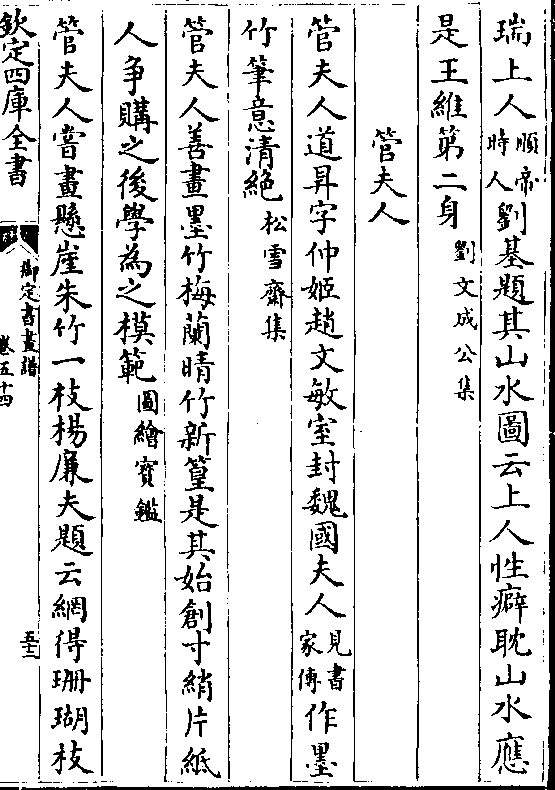 瑞上人順帝時人劉基題其山水圖云上人性癖耽山水應
是王維第二身劉文成公集
管夫人
管夫人道昇字仲姬趙文敏室封魏國夫人見書家傳作墨
竹筆意清絶松雪齋集
管夫人善畫墨竹梅蘭晴竹新篁是其始創寸綃片紙
人争購之後學為之模範圖繪寳鑑
管夫人嘗畫懸崖朱竹一枝楊廉夫題云網得珊瑚枝
欽定四庫全書
御定書畫譜
卷五十四
五十二